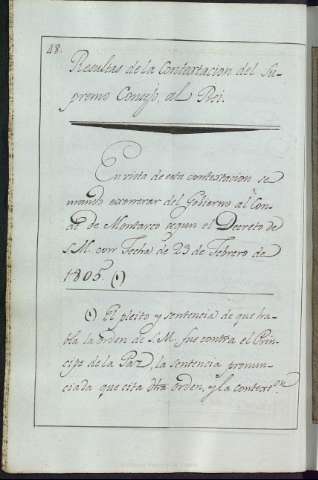 48.
Resultas de la Contextacion del Su-
premo Consejo, al Rei.
En vista de esta contextacion se
mandó exonerar del Gobierno al Con-
de de Montarco segun el Decreto de
S.M. con Fecha de 23 de Febrero de
1805. (*)
(*) El pleito y sentencia de que ha-
bla la orden de S.M. fue contra el Prin-
cipe de la Paz, la sentencia pronun-
ciada que cita dha orden, y la context.on